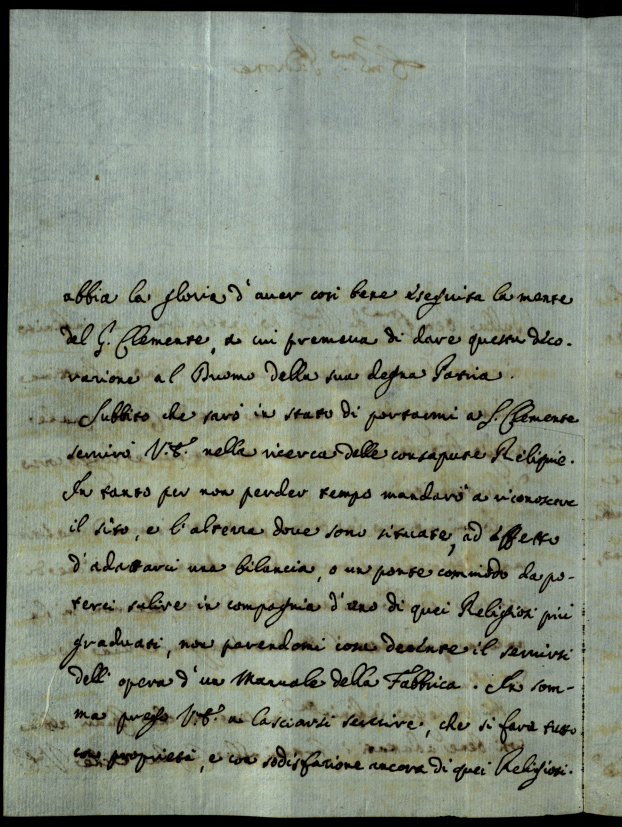 abbia la gloria d'aver così bene eseguita la mente
del S. Clemente, a cui premeva di dare questa deco-
razione al Duomo della sua degna Patria.
Subbito che sarò in stato di portarmi a S. Clemente
servirò V.S. nella ricerca delle consapute Reliquie.
In tanto per non perder tempo mandarò a riconoscere
il sito, e l'altezza dove sono situate, ad effetto
d'adattarci una bilancia, o un ponte commodo da po-
terci salire in compagnia d'uno di quei Religiosi più
graduati, non parendomi cosa decente il servirsi
dell'opera d'un Manuale della Fabbrica. In som-
ma prego V.S. a lasciarsi servire, che si farà tutto
con proprietà, e con sodisfazione ancora di quei Religiosi.